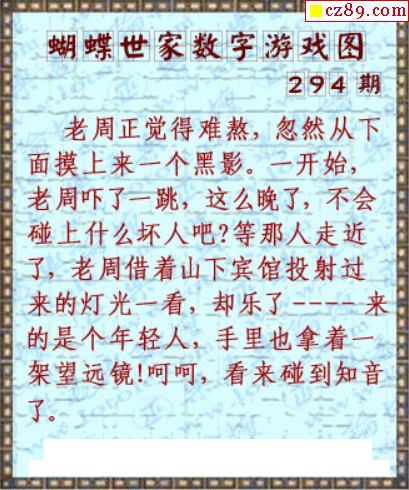 cz89.com
蝴蝶世家数字游戏图
294 期
老周正觉得难熬，忽然从下
面摸上来一个黑影。一开始，
老周吓了一跳，这么晚了，不会
碰上什么坏人吧?等那人走近
了，老周借着山下宾馆投射过
来的灯光一看，却乐了----来
的是个年轻人，手里也拿着一
架望远镜!呵呵，看来碰到知音
了。